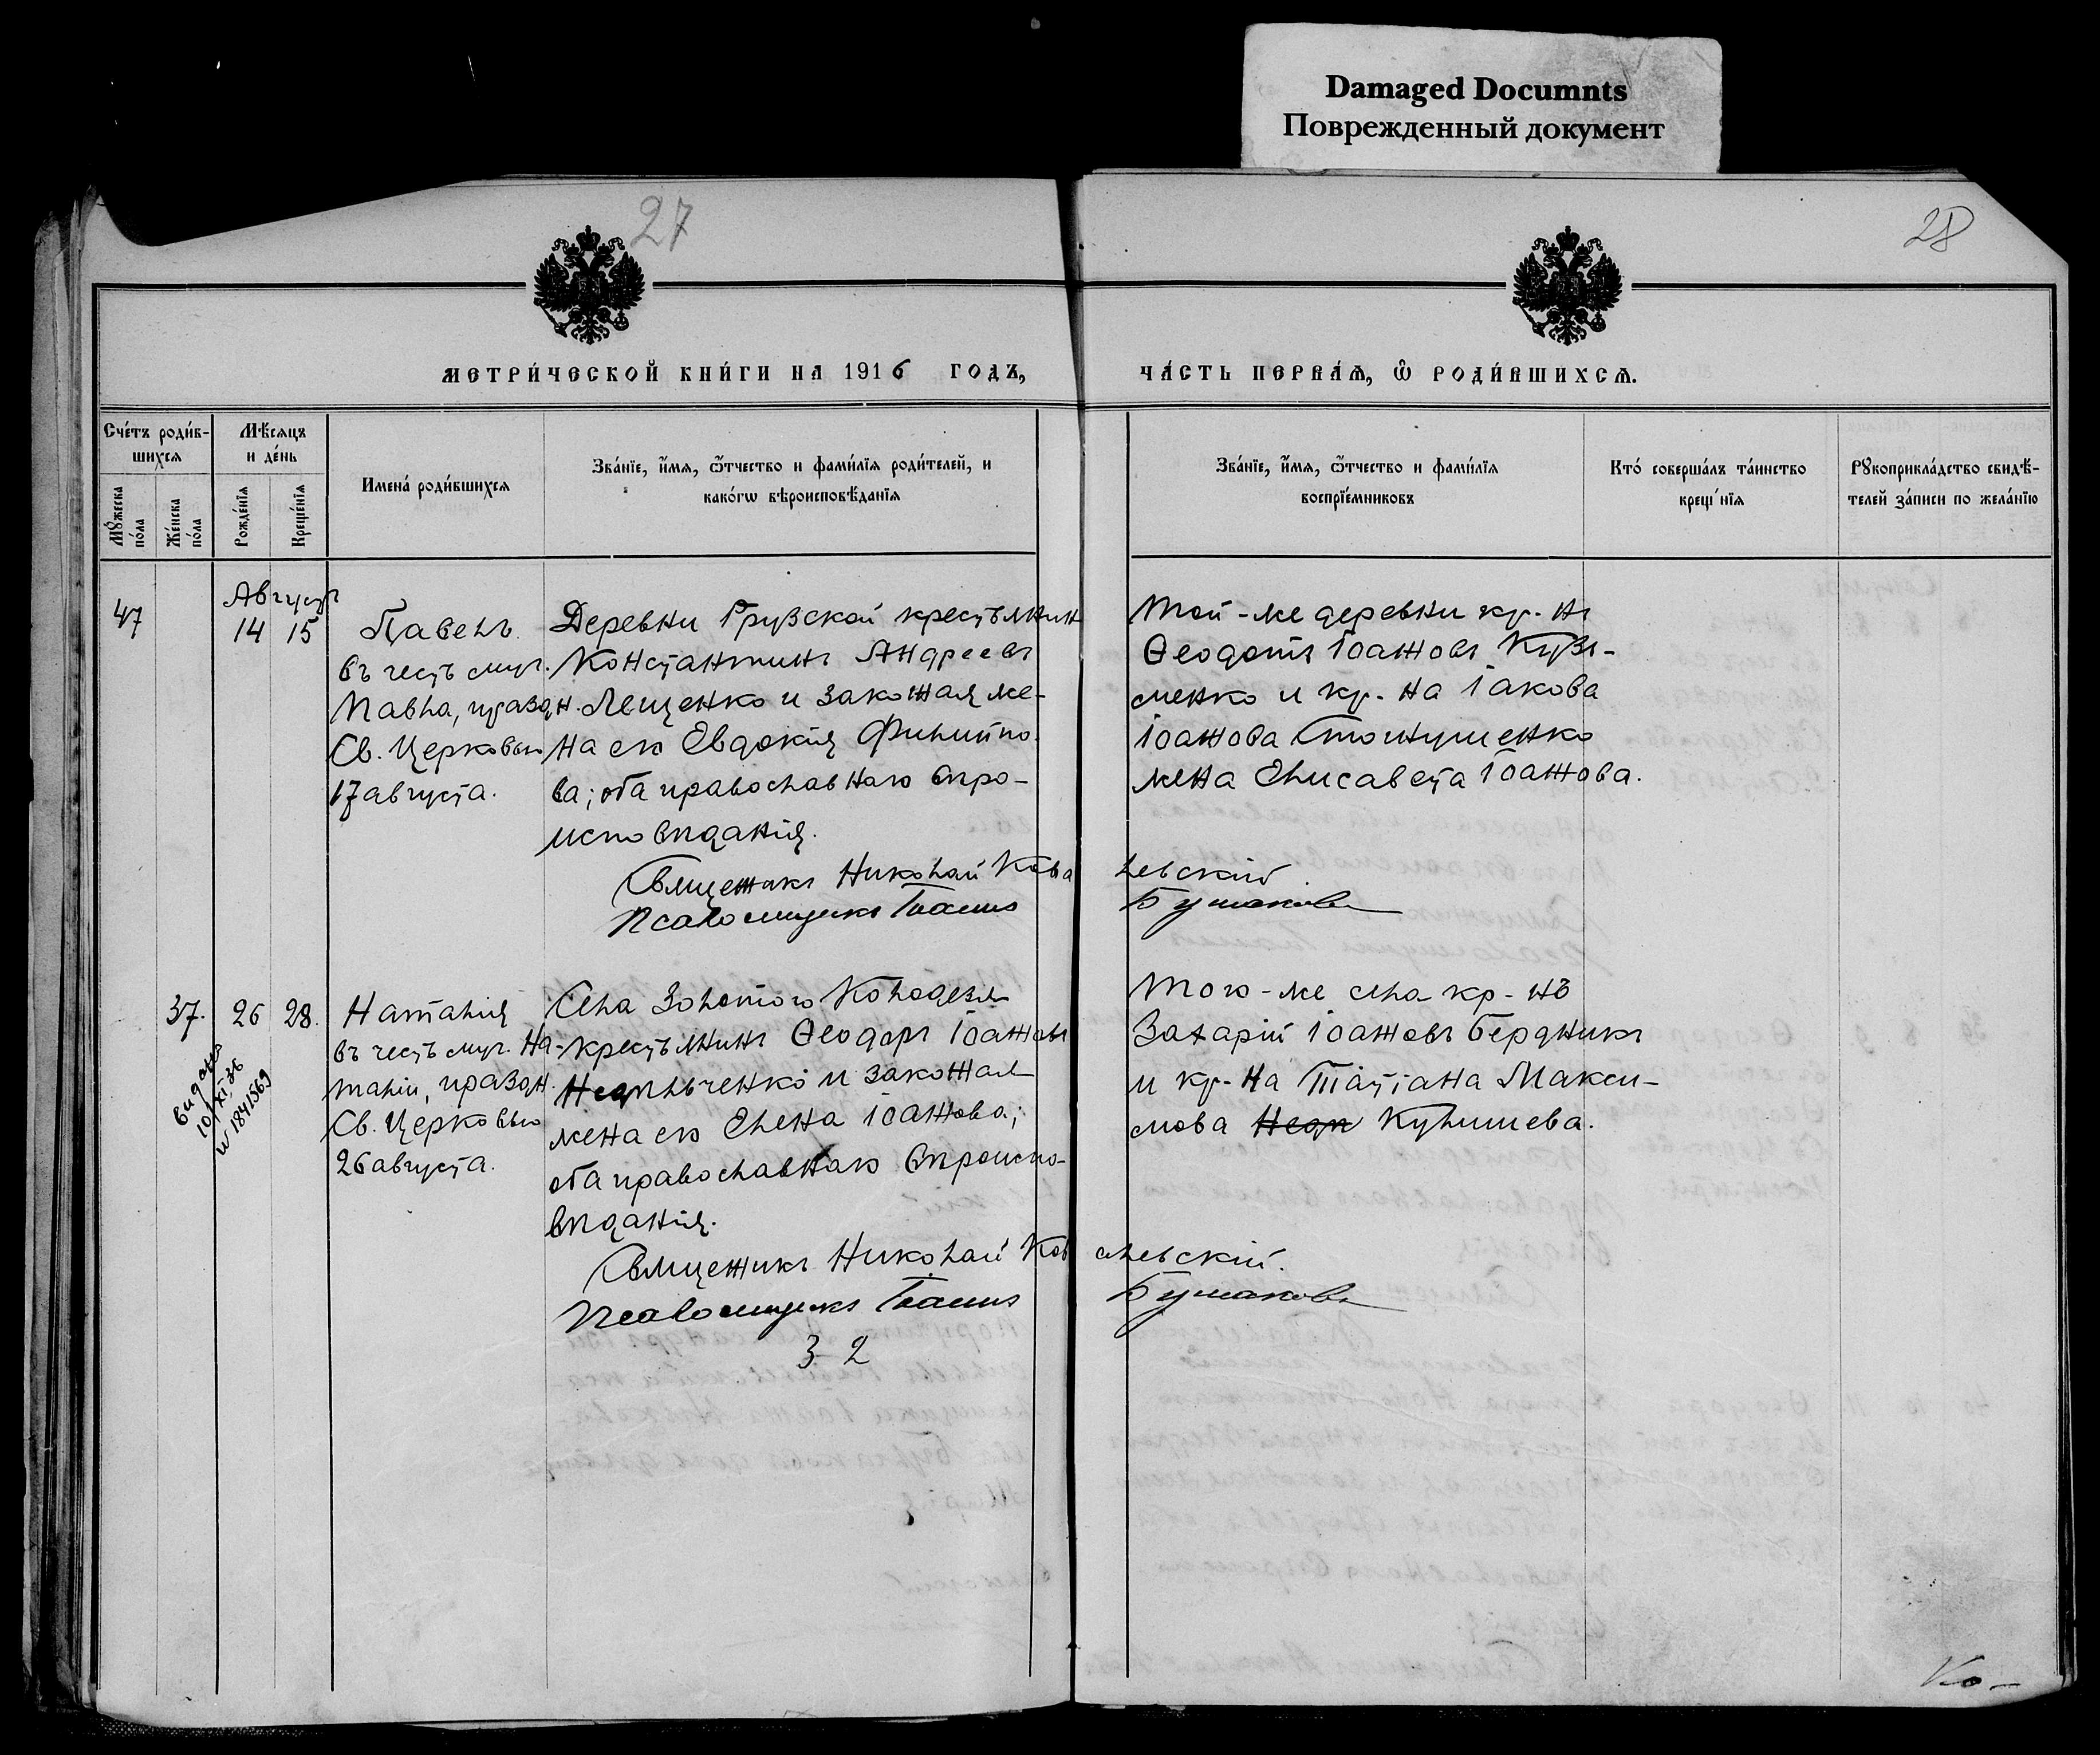 Damaged Documnts
Поврежденный документ
27
28
МЕТРИ́ЧЕСКОЙ КНИ́ГИ НА 1916 ГОДЪ,
ЧА́СТЬ ПЕ́РВАѦ, Ѡ҆ РОДИ́ВШИХСѦ.
Сче́тъ роди́в-
шихсѧ
Мꙋ́жеска по́ла
Же́нска по́ла
Мѣ́сѧцъ
и де́нь
Рожде́нїѧ
Креще́нїѧ
Имена́ роди́вшихсѧ
Зва́нїе, и҆́мѧ, ѻ҆́тчество и фами́лїѧ роди́телей, и
како́гѡ вѣроисповѣ́данїѧ
Зва́нїе, и҆́мѧ, ѻ҆́тчество и фами́лїѧ
воспрїе́мниковъ
Кто́ соверша́лъ та́инство
креще́нїѧ
Рꙋкоприкла́дство свидѣ́-
телей за́писи по жела́нїю
47
Августъ
14 15
Павелъ
въ честь муч.
Павла, праздн.
Св. Церковью
17 августа.
Деревни Грузской крестьянинъ
Константинъ Андреевъ
Лещенко и законная же-
на его Евдокія Филиппо-
ва; оба православнаго вѣро-
исповѣданія.
Той-же деревни кр-нъ
Ѳеодотъ Іоанновъ Кузь-
менко и кр-на Іакова
Іоаннова
жена Елисавета Іоаннова.
Священникъ Николай Ковалевскій
Псаломщикъ Іоаннъ Бушаковъ
37. 26 28.
видано
10/XI 36
№ 1841569
Наталія
въ честь муч. На-
таліи, праздн.
Св. Церковью
26 августа.
Села Золотого Колодезя
крестьянинъ Ѳеодоръ Іоанновъ
Недѣльченко и законная
жена его Елена Іоаннова;
оба православнаго вѣроиспо-
вѣданія.
Того-же села кр-нъ
Захарій Іоанновъ Бердникъ
и кр-на Татіана Макси-
мова Недѣ Кулишева.
Священникъ Николай Ковалевскій.
Псаломщикъ Іоаннъ Бушаковъ
3 2
Ко-